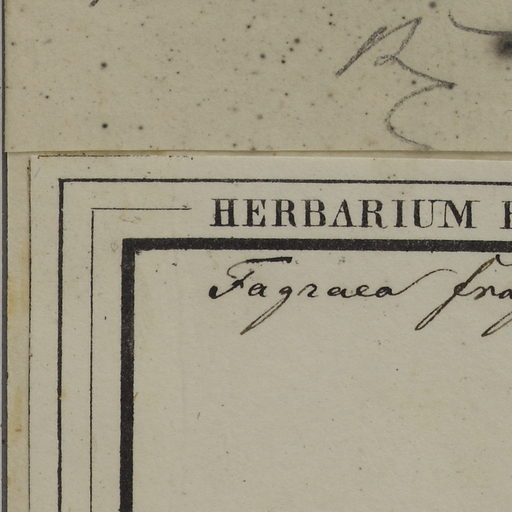 HERBARIUM
Fagraea frag